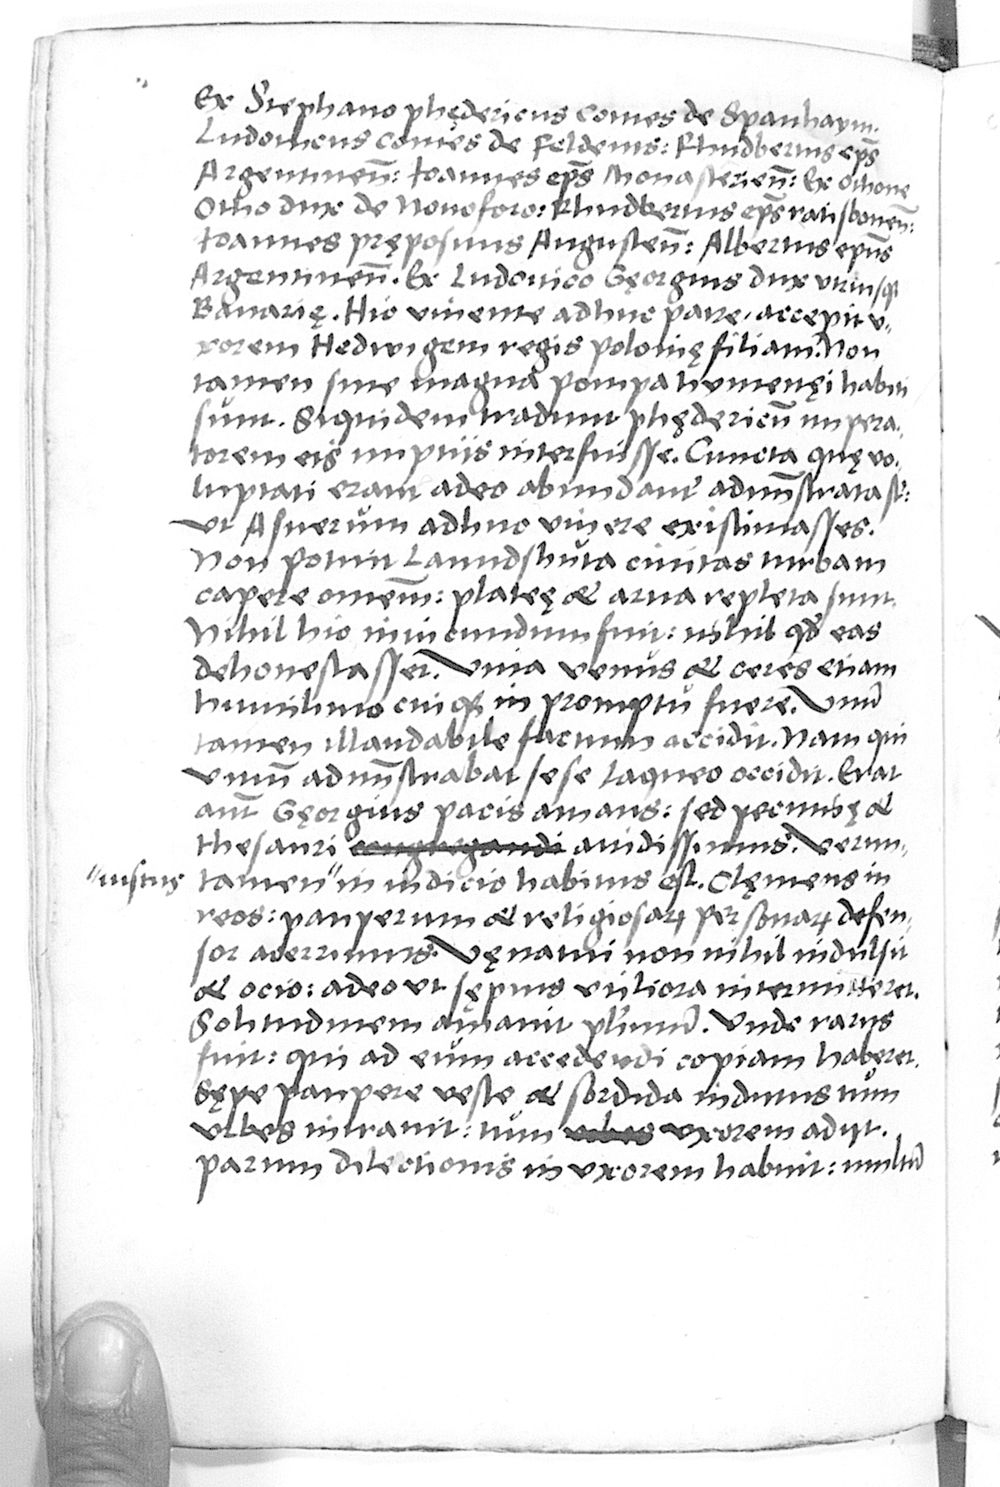 Ex Stephano phędericus comes de Spanhaym.
Ludouicus comes de Feldenns: Rhudbertus ep̄s
Argentineñ: Ioannes ep̄s Monasterieñ: Ex Othone
Otho dux de Nouoforo: Rhudbertus ep̄s ratisboneñ:
Ioannes prępositus Augusteñ: Albertus ep̄us
Argentineñ. Ex Ludouico Gęorgius dux utriusq;
Bauarię. Hic viuente adhuc patre, accepit v-
xorem Hedwigem regis polonię filiam. Non
tamen sine magna pompa hymenęi habiti
sunt. Siquidem tradunt phędericū impera-
torem eis nuptiis interfuisse. Cuncta quę vo-
luptati erant adeo abundant̄ admīstrata sī:
vt Asuerum adhuc viuere existimasses.
Non potuit Lanndshuta ciuitas turbam
capere omēm: plateę & arua repleta sunt.
Nihil hic iniucundum fuit: nihil qđ eas
dehonestasset. Vina venus & ceres etiam
humilimo cuiq; in promptu fuere. Vnū
tamen illaudabile factum accidit. Nam qui
vinū admīstrabat sese laqueo occidit. Erat
aūt Gęorgius pacis amans: sed pecunię &
thesauri congregandi auidissimus. Verun-
"iustus tamen" in iudicio habitus est. Clęmens in
reos: pauperum & religiosaꝝ personaꝝ defen-
sor acerrimus. Vęnatui non nihil indulsit
& ocio: adeo vt sępius vtiliora intermitteret.
Solitudinem amauit plīmū. Vnde rarus
fuit: qui ad eum accedendi copiam haberet.
Sępe paupere veste & sordida indutus tum
vrbes intrauit: tum vrbes vxorem adijt.
Parum dilectionis in vxorem habuit: multū